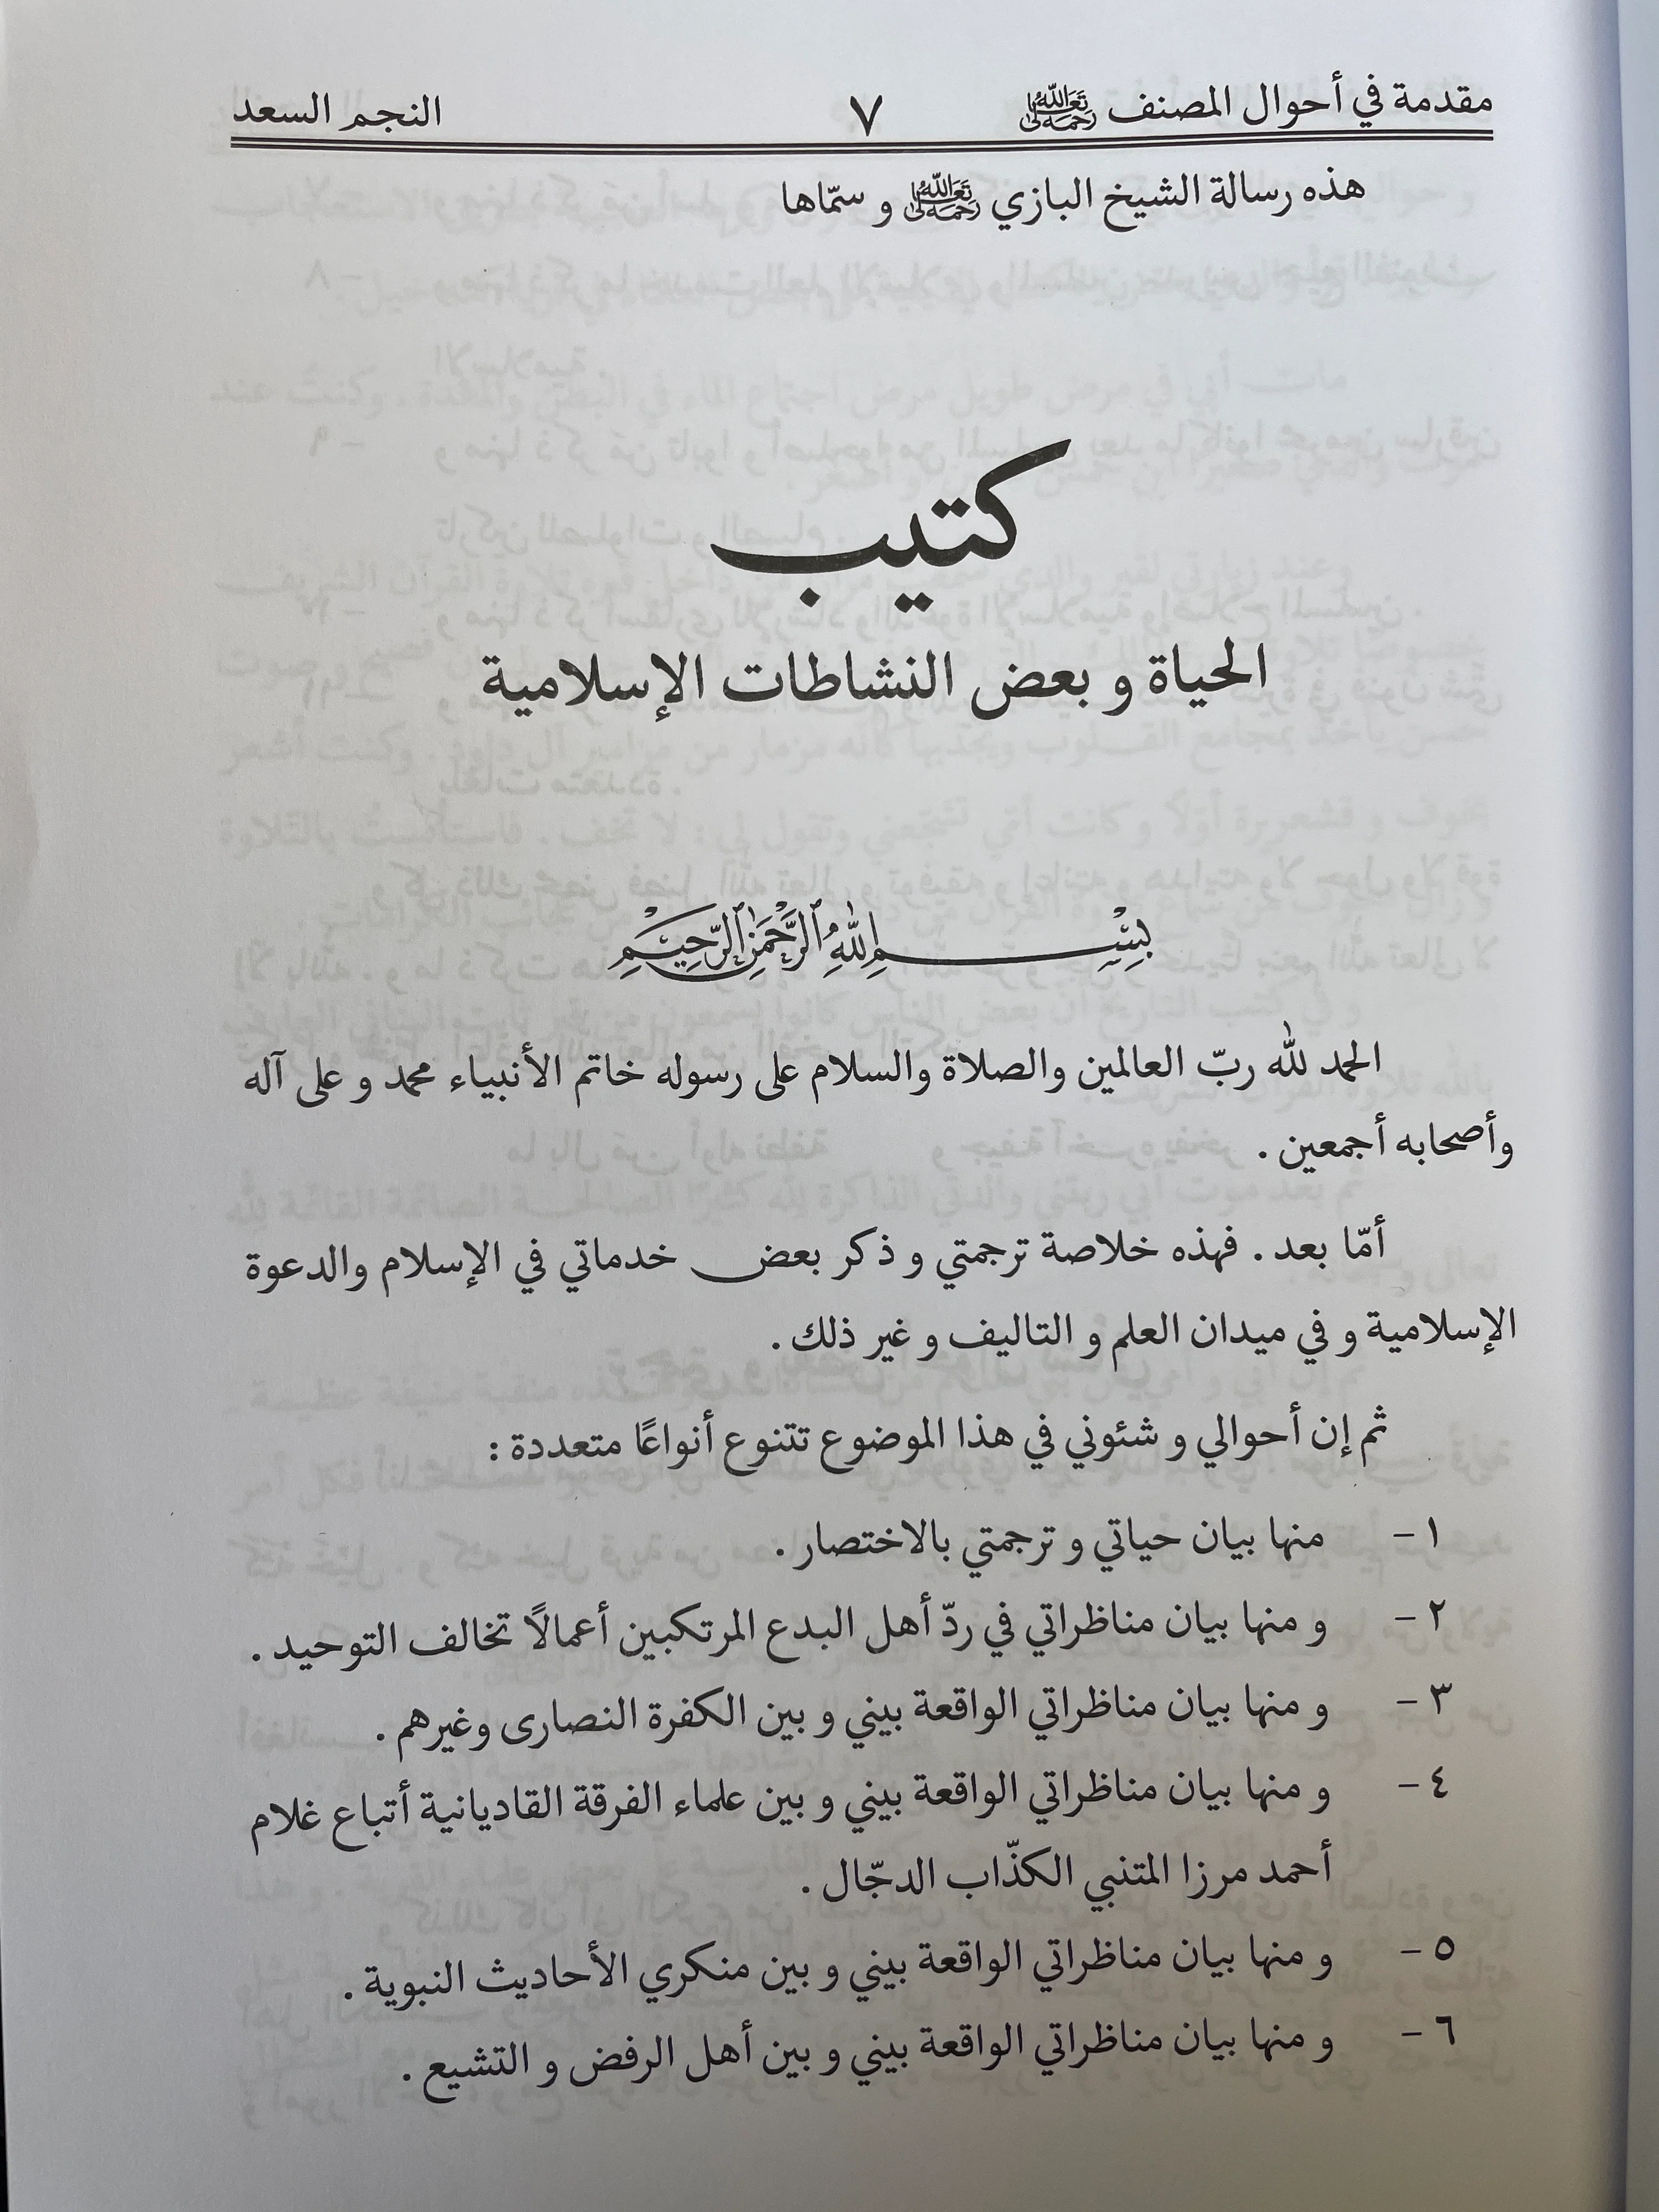 مقدمة في أحوال المصنف رحمه الله تعالى ٧ النجم السعد
هذه رسالة الشيخ البازي رحمه الله تعالى و سمّاها
كتيب
الحياة و بعض النشاطات الإسلامية
بِسْمِ اللهِ الرَّحْمٰنِ الرَّحِيْمِ
الحمد لله ربّ العالمين والصلاة والسلام على رسوله خاتم الأنبياء محمد و على آله
وأصحابه أجمعين .
أمّا بعد . فهذه خلاصة ترجمتي و ذكر بعض خدماتي في الإسلام والدعوة
الإسلامية و في ميدان العلم و التاليف و غير ذلك .
ثم إن أحوالي و شئوني في هذا الموضوع تتنوع أنواعًا متعددة :
١ - منها بيان حياتي و ترجمتي بالاختصار .
٢ - و منها بيان مناظراتي في ردّ أهل البدع المرتكبين أعمالًا تخالف التوحيد .
٣ - و منها بيان مناظراتي الواقعة بيني و بين الكفرة النصارى وغيرهم .
٤ - و منها بيان مناظراتي الواقعة بيني و بين علماء الفرقة القاديانية أتباع غلام
أحمد مرزا المتنبي الكذّاب الدجّال .
٥ - و منها بيان مناظراتي الواقعة بيني و بين منكري الأحاديث النبوية .
٦ - و منها بيان مناظراتي الواقعة بيني و بين أهل الرفض و التشيع .